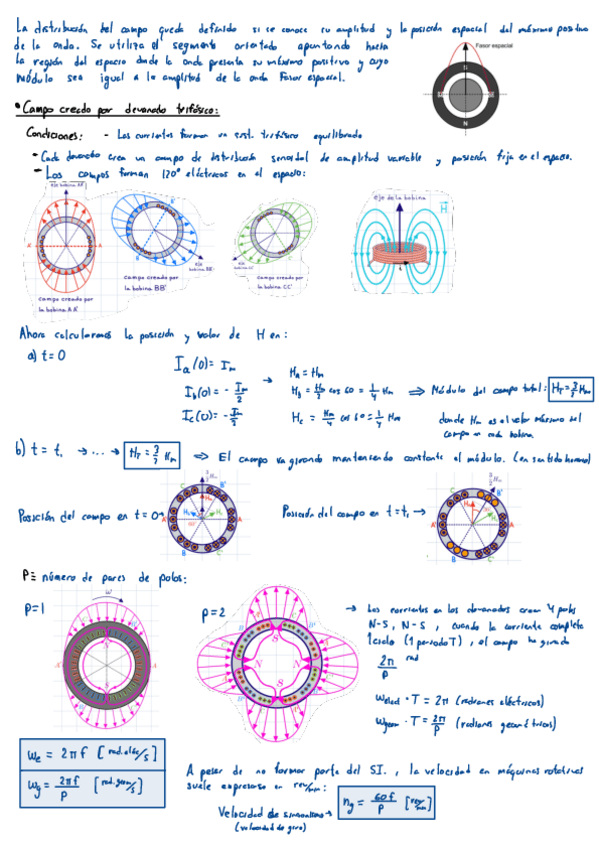 La distribución del campo queda definido si se conoce su amplitud y la posición espacial del máximo positivo
de la onda. Se utiliza el segmento orientado apuntando hacia
la región del espacio donde la onda presenta su máximo positivo y cuyo
módulo sea igual a la amplitud de la onda Fasor espacial.
Fasor espacial
• Campo creado por devanado trifásico:
Condiciones: - Las corrientes forman un sist. trifásico equilibrado
- Cada devanado crea un campo de distribución senoidal de amplitud variable y posición fija en el espacio.
- Los campos forman 120° eléctricos en el espacio:
eje de la bobina
H
campo creado por
la bobina AA'
campo creado por
la bobina BB'
campo creado por
la bobina CC'
Ahora calcularemos la posición y valor de H en:
a) t = 0
Ia(0) = Im
Ib(0) = - Im/2
Ic(0) = - Im/2
→
HA = Hm
HB = Hm/2 cos 60 = 1/4 Hm
HC = Hm/4 cos 60 = 1/4 Hm
⇒ Módulo del campo total: HT = 3/2 Hm
donde Hm es el valor máximo del
campo en cada bobina.
b) t = t1 → ... → HT = 3/2 Hm ⇒ El campo va girando manteniendo constante el módulo. (en sentido horario)
Posición del campo en t = 0 →
Posición del campo en t = t1 →
P ≡ número de pares de polos:
p=1
p=2
→ Las corrientes en los devanados crean 4 polos
N-S, N-S, cuando la corriente completa
1 ciclo (1 periodo T), el campo ha girado
2π/p rad
ωelect · T = 2π (radianes eléctricos)
ωgeom · T = 2π/p (radianes geométricos)
ωe = 2πf [rad. eléc/s]
ωg = 2πf/p [rad. geom/s]
A pesar de no formar parte del SI., la velocidad en máquinas rotativas
suele expresarse en rev/min:
Velocidad de sincronismo →
(velocidad de giro)
ng = 60f/p [rev/min]